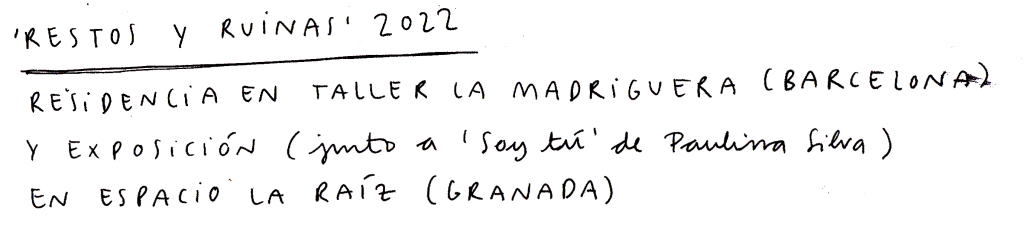 'RESTOS Y RUINAS' 2022
RESIDENCIA EN TALLER LA MADRIGUERA (BARCELONA)
Y EXPOSICIÓN (junto a 'Soy tú' de Paulina Silva)
EN ESPACIO LA RAÍZ (GRANADA)